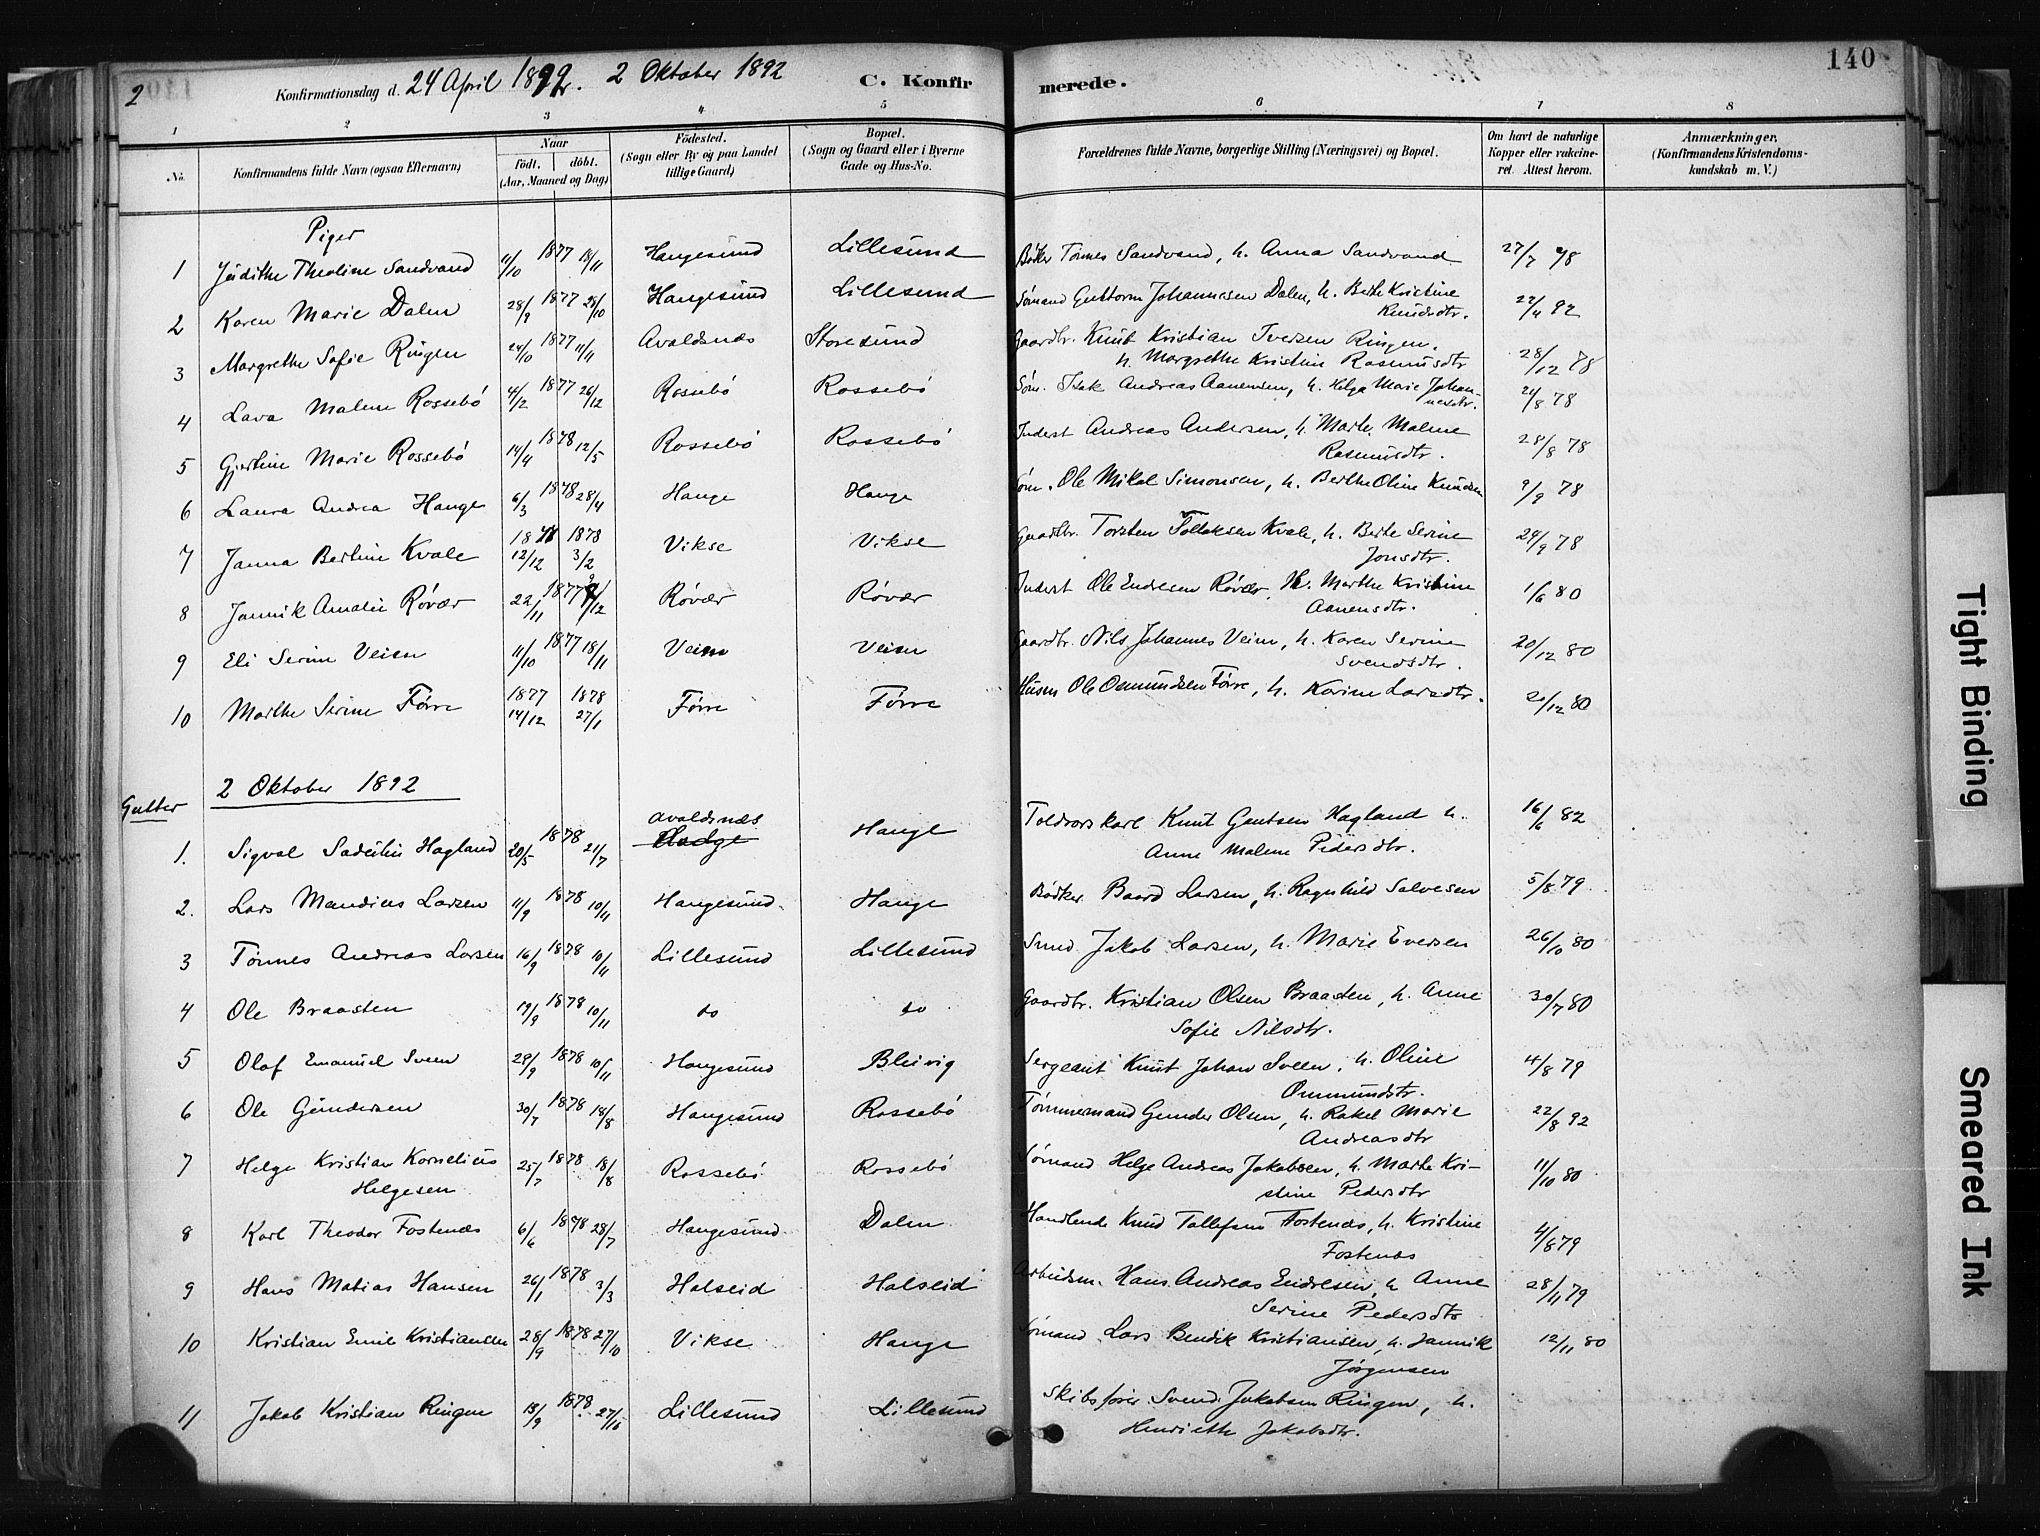 2 Konfirmationsdag d. 24 April 1892. 2 Oktober 1892 C. Konfirmerede. 140
1 2 3 4 5 6 7 8
No.
Konfirmandens fulde Navn (ogsaa Efternavn)
Naar
födt. döbt.
(Aar, Maaned og Dag)
Födested.
(Sogn eller By og paa Landet
tillige Gaard)
Bopæl.
(Sogn og Gaard eller i Byerne
Gade og Hus-No.
Forældrenes fulde Navne, borgerlige Stilling (Næringsvei) og Bopæl.
Om havt de naturlige
Kopper eller vakcine-
ret. Attest herom.
Anmærkninger,
(Konfirmandens Kristendoms-
kundskab m. V.)
Piger
1 Judithe Theoline Sandvand 11/10 1877 18/11 Haugesund Lillesund Bödker Tönnes Sandvand, h. Anna Sandvand 27/7 78
2 Karen Marie Dalen 28/9 1877 28/10 Haugesund Lillesund Sömand Guttorm Johannesen Dalen, h. Berte Kristine
Knudsdtr. 22/4 92
3 Margrethe Sofie Ringen 24/10 1877 11/11 Avaldsnæs Storesund Gaardbr. Knut Kristian Iversen Ringen.
h. Margrethe Kristine Rasmusdtr 28/12 78
4 Lava Malene Rossebö 4/2 1877 26/12 Rossebö Rossebö Söm. Isak Andreas Aanensen, h. Helga Marie Johan-
nesdtr. 24/8 78
5 Gjertine Marie Rossebö 14/4 1878 12/5 Rossebö Rossebö Inderst Andreas Andersen, h. Marte Malene
Rasmusdtr. 28/8 78
6 Laura Andrea Hauge 6/3 1878 28/4 Hauge Hauge Söm. Ole Mikal Simonsen, h. Berthe Oline Knudsen 9/9 78
7 Janna Bertine Kvale 1877 12/12 1878 3/2 Vikse Vikse Gaardbr. Torsten Tollaksen Kvale, h. Berte Serine
Jonsdtr. 24/9 78
8 Jannik Amalie Rövær 22/11 1877 /12 Rövær Rövær Inderst Ole Endresen Rövær, H. Marthe Kristine
Aanensdtr. 1/6 80
9 Eli Serine Veien 11/10 1877 18/11 Veien Veien Gaardbr. Nils Johannes Veien, h. Karen Serine
Svendsdtr. 20/12 80
10 Marthe Serine Förre 1877 14/12 1878 27/1 Förre Förre Husm Ole Osmundsen Förre, h. Karine Larsdtr. 20/12 80
Gutter 2 Oktober 1892
1. Sigval Hagland 20/5 1878 21/7 Avaldsnæs Hauge Toldvorskarl Knut Gautsen Hagland h.
Anne Malene Pedersdtr. 16/6 82
2. Lars Mandius Larsen 11/9 1878 10/11 Haugesund Hauge Bödker Baard Larsen, h. Ragnhild Salvesen 5/8 79
3 Tönnes Andreas Larsen 16/9 1878 10/11 Lillesund Lillesund Smed Jakob Larsen, h. Marie Eversen 26/10 80
4 Ole Braasten 19/9 1878 10/11 do do Gaardbr. Kristian Olsen Braasten, h. Anne
Sofie Nilsdtr. 30/7 80
5 Olaf Emanuel Sveen 29/9 1878 10/11 Haugesund Bleivig Sergeant Knut Johan Sveen, h. Oline
Ommundsdtr. 4/8 79
6 Ole Gundersen 30/7 1878 18/8 Haugesund Rossebö Tömmermand Gunder Olsen, h. Rakel Marie
Andreasdtr 22/8 92
7 Helge Kristian Kornelius
Helgesen 25/7 1878 18/8 Rossebö Rossebö Sömand Helge Andreas Jakobsen, h. Marte Kri-
stine Pedersdtr 11/10 80
8 Karl Theodor Fostenæs 6/6 1878 28/7 Haugesund Dalen Handlende Knud Tallefsen Fostenæs, h. Kristine
Fostenæs 4/8 79
9 Hans Matias Hansen 26/1 1878 3/3 Halseid Halseid Arbeidsm. Hans Andreas Endresen, h Anne
Serine Pedersdtr 28/11 79
10 Kristian Emil Kristiansen 28/9 1878 27/10 Vikse Hauge Sömand Lars Bendik Kristiansen, h. Jannik
Jörgensen 12/11 80
11 Jakob Kristian Ringen 18/9 1878 27/10 Lillesund Lillesund Skibsförer Svend Jakobsen Ringen, h.
Henriette Jakobsdtr.
Tight Binding
Smeared Ink